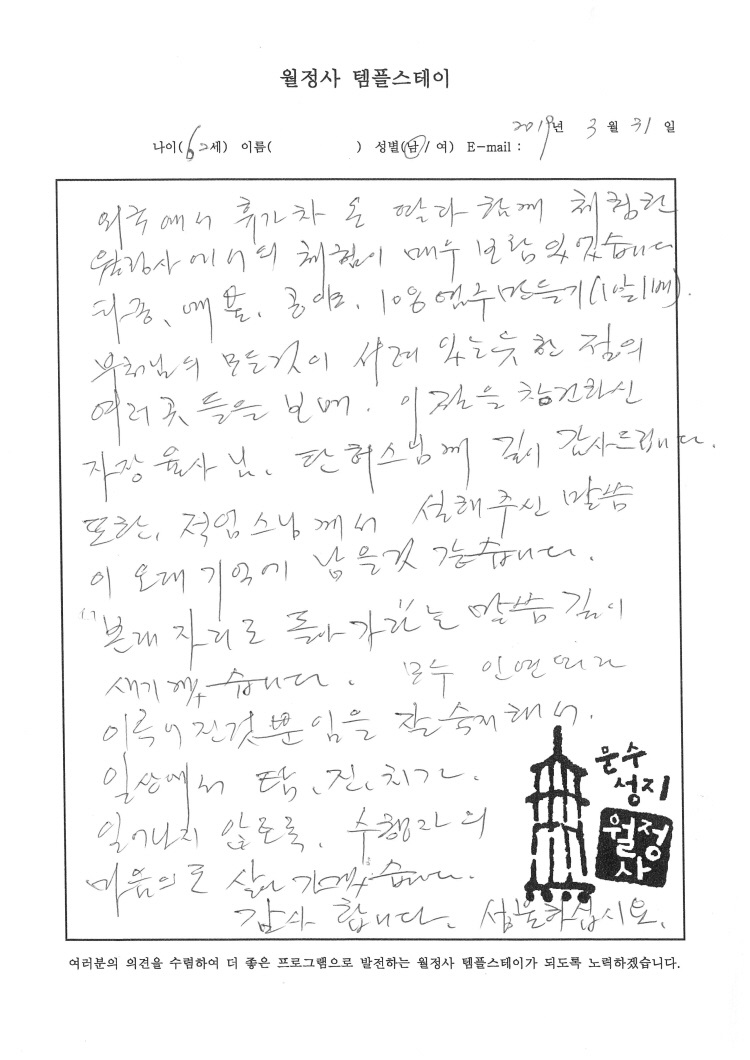 월정사 템플스테이
2019년 3월 31일
나이(62세) 이름( ) 성별(남/여) E-mail :
외국에서 휴가차 온 딸과 함께 체험한
월정사에서의 체험이 매우 보람 있었습니다
타종, 예불, 공양, 108염주만들기(1알1배).
부처님의 모든것이 서려 있는듯 한 절의
여러 곳 들을 보며. 이 절을 창건하신
자장 율사님, 탄허스님께 깊이 감사드립니다.
또한, 적엄스님께서 설해주신 말씀
이 오래 기억에 남을것 같습니다.
"본래 자리로 돌아가라"는 말씀 깊이
새기겠습니다. 모두 인연따라
이루어진것뿐임을 잘 숙지해서.
일상에서 탐, 진, 치가.
일어나지 않도록. 수행자의
마음으로 살아가겠습니다.
감사 합니다. 성불하십시오.
문수
성지
월정
사
여러분의 의견을 수렴하여 더 좋은 프로그램으로 발전하는 월정사 템플스테이가 되도록 노력하겠습니다.